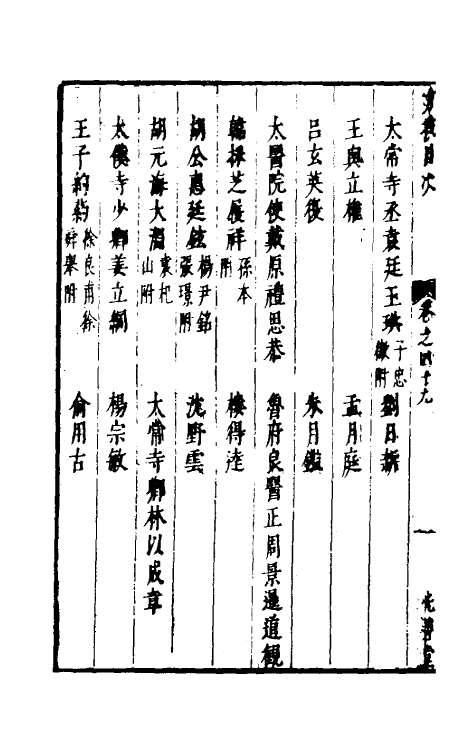 目次 卷之四十九 一
太常寺丞袁廷玉珙子忠徹附 劉日新
王與立權 孟月庭
呂玄英復 朱月鑑
太醫院使戴原禮思恭 魯府良醫正周景遠道觀
韓探芝履祥孫本附 樓得達
胡公惠廷鉉楊尹銘張璟附 沈野雲
胡元海大淵袁杞山附 太常寺卿林以成章
太僕寺少卿姜立綱 楊宗敏
王子約約徐良甫徐舜舉附 俞用古